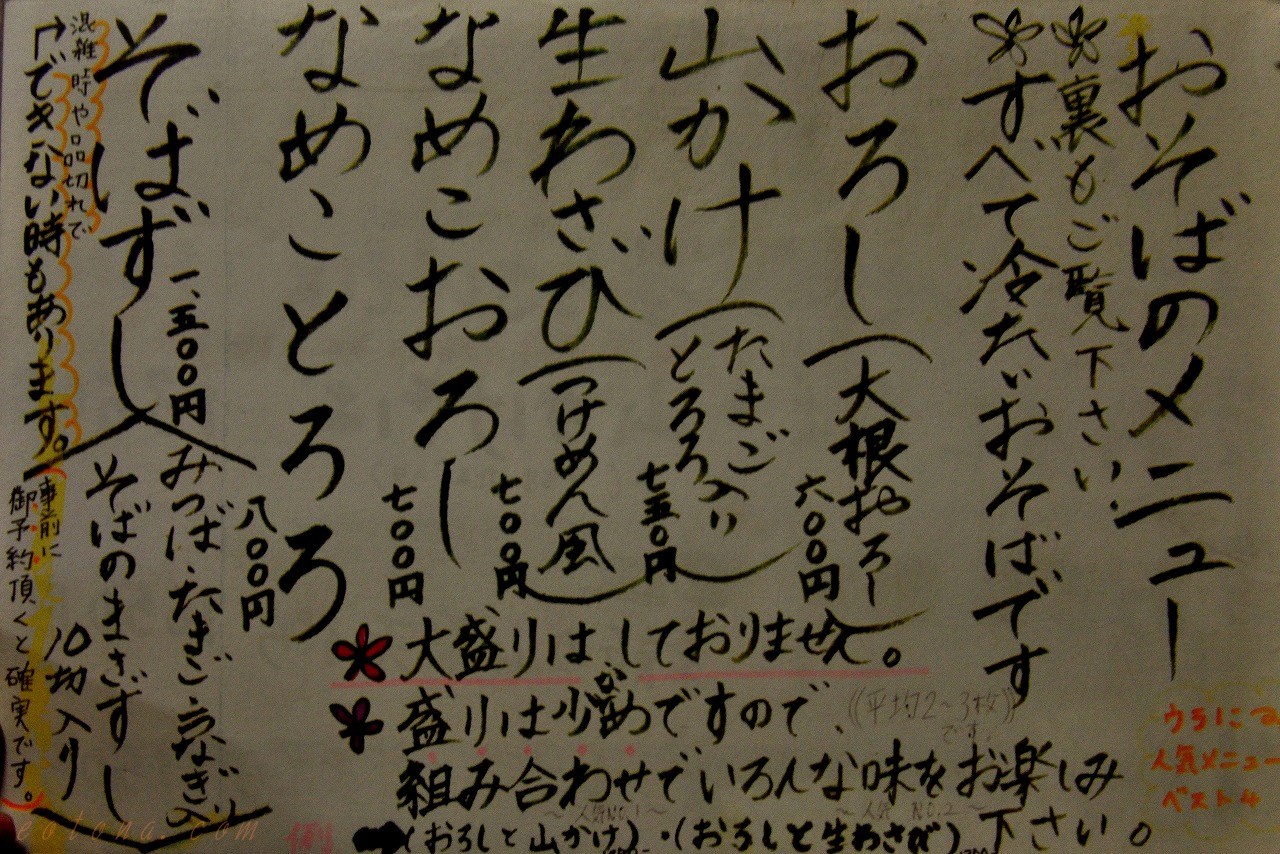 おそばのメニュー
裏もご覧下さい
すべて冷たいおそばです
おろし(大根おろし) 六〇〇円
山かけ(たまご とろろ入り) 七五〇円
生わさび(つけめん風) 七〇〇円
なめこおろし 七〇〇円
なめことろろ 八〇〇円
そばずし 一、五〇〇円
みつば・たまご・うなぎ入り
そばのまきずし
10切入り
混雑時や品切れで
できない時もあります。
事前に
御予約頂くと確実です。
大盛りはしておりません。
盛りは少なめですので、
((平均2〜3枚))
です。
組み合わせでいろんな味をお楽しみ
下さい。
〜人気NO.1〜
〜人気NO.2〜
例
(おろしと山かけ)・(おろしと生わさび)
ウラにて
人気メニュー
ベスト4
eotona.com